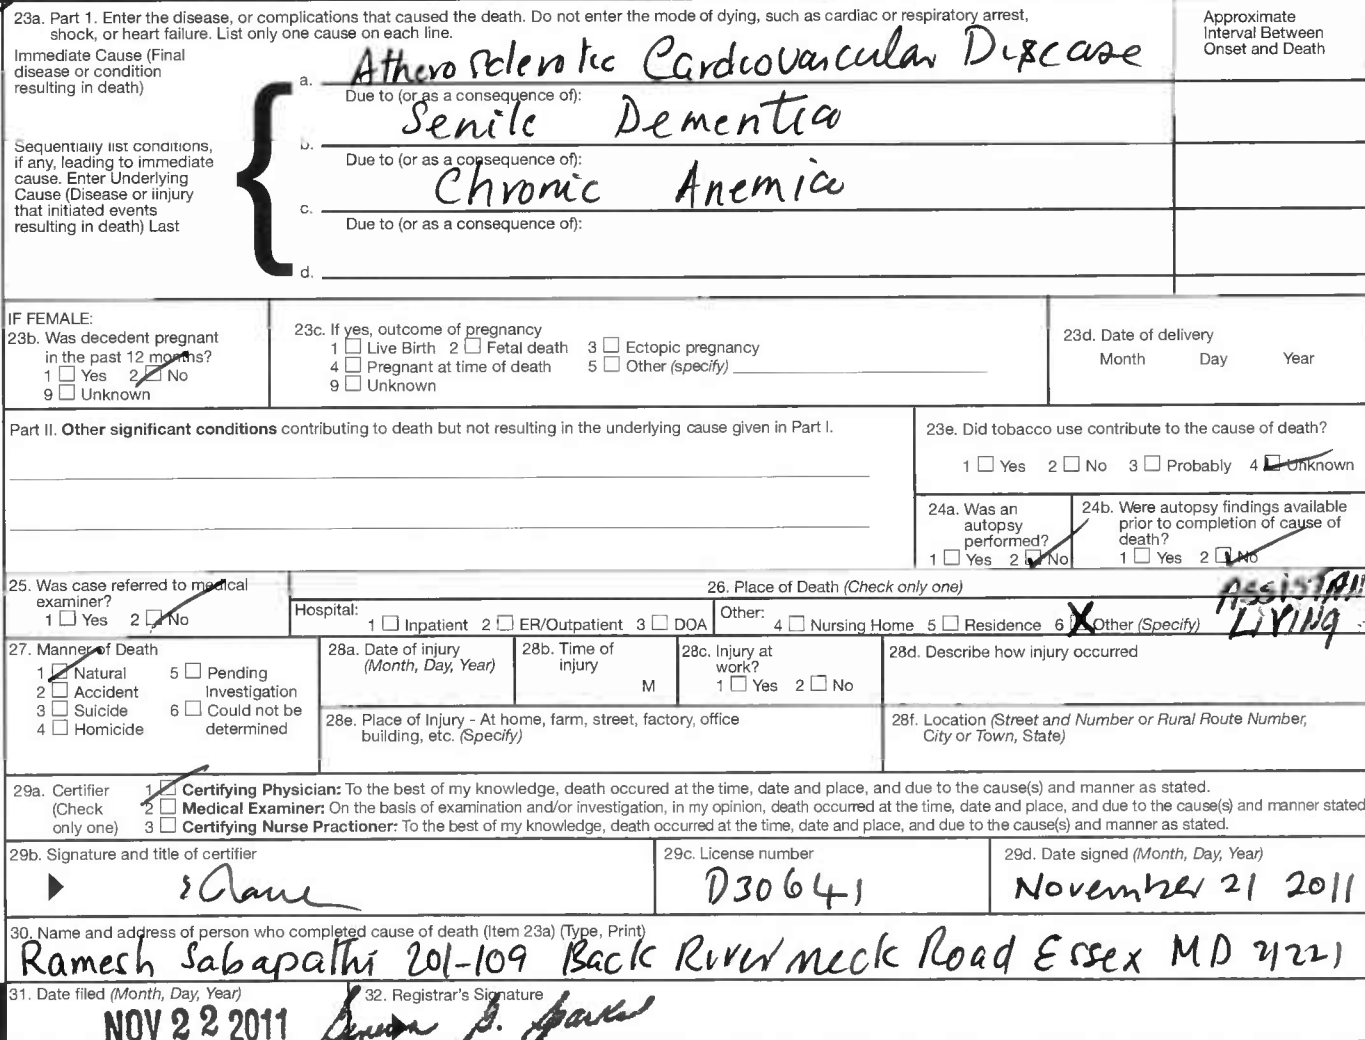 23a. Part 1. Enter the disease, or complications that caused the death. Do not enter the mode of dying, such as cardiac or respiratory arrest,
shock, or heart failure. List only one cause on each line.
Approximate
Interval Between
Onset and Death
Immediate Cause (Final
disease or condition
resulting in death)
a. Atherosclerotic Cardiovascular Disease
Due to (or as a consequence of):
Sequentially list conditions,
if any, leading to immediate
cause. Enter Underlying
Cause (Disease or iinjury
that initiated events
resulting in death) Last
b. Senile Dementia
Due to (or as a consequence of):
c. Chronic Anemia
Due to (or as a consequence of):
d.
IF FEMALE:
23b. Was decedent pregnant
in the past 12 months?
1 ☐ Yes 2 ☑ No
9 ☐ Unknown
23c. If yes, outcome of pregnancy
1 ☐ Live Birth 2 ☐ Fetal death 3 ☐ Ectopic pregnancy
4 ☐ Pregnant at time of death 5 ☐ Other (specify)
9 ☐ Unknown
23d. Date of delivery
Month Day Year
Part II. Other significant conditions contributing to death but not resulting in the underlying cause given in Part I.
23e. Did tobacco use contribute to the cause of death?
1 ☐ Yes 2 ☐ No 3 ☐ Probably 4 ☑ Unknown
24a. Was an
autopsy
performed?
1 ☐ Yes 2 ☑ No
24b. Were autopsy findings available
prior to completion of cause of
death?
1 ☐ Yes 2 ☑ No
25. Was case referred to medical
examiner?
1 ☐ Yes 2 ☑ No
26. Place of Death (Check only one)
Hospital: 1 ☐ Inpatient 2 ☐ ER/Outpatient 3 ☐ DOA
Other: 4 ☐ Nursing Home 5 ☐ Residence 6 ☒ Other (Specify)
LIVING
27. Manner of Death
1 ☑ Natural 5 ☐ Pending
2 ☐ Accident Investigation
3 ☐ Suicide 6 ☐ Could not be
4 ☐ Homicide determined
28a. Date of injury
(Month, Day, Year)
28b. Time of
injury
M
28c. Injury at
work?
1 ☐ Yes 2 ☐ No
28d. Describe how injury occurred
28e. Place of Injury - At home, farm, street, factory, office
building, etc. (Specify)
28f. Location (Street and Number or Rural Route Number,
City or Town, State)
29a. Certifier
(Check
only one)
1 ☑ Certifying Physician: To the best of my knowledge, death occured at the time, date and place, and due to the cause(s) and manner as stated.
2 ☐ Medical Examiner: On the basis of examination and/or investigation, in my opinion, death occurred at the time, date and place, and due to the cause(s) and manner stated
3 ☐ Certifying Nurse Practioner: To the best of my knowledge, death occurred at the time, date and place, and due to the cause(s) and manner as stated.
29b. Signature and title of certifier
29c. License number
D30641
29d. Date signed (Month, Day, Year)
November 21 2011
30. Name and address of person who completed cause of death (Item 23a) (Type, Print)
Ramesh Sabapathi 201-109 Back River neck Road Essex MD 21221
31. Date filed (Month, Day, Year)
NOV 22 2011
32. Registrar's Signature